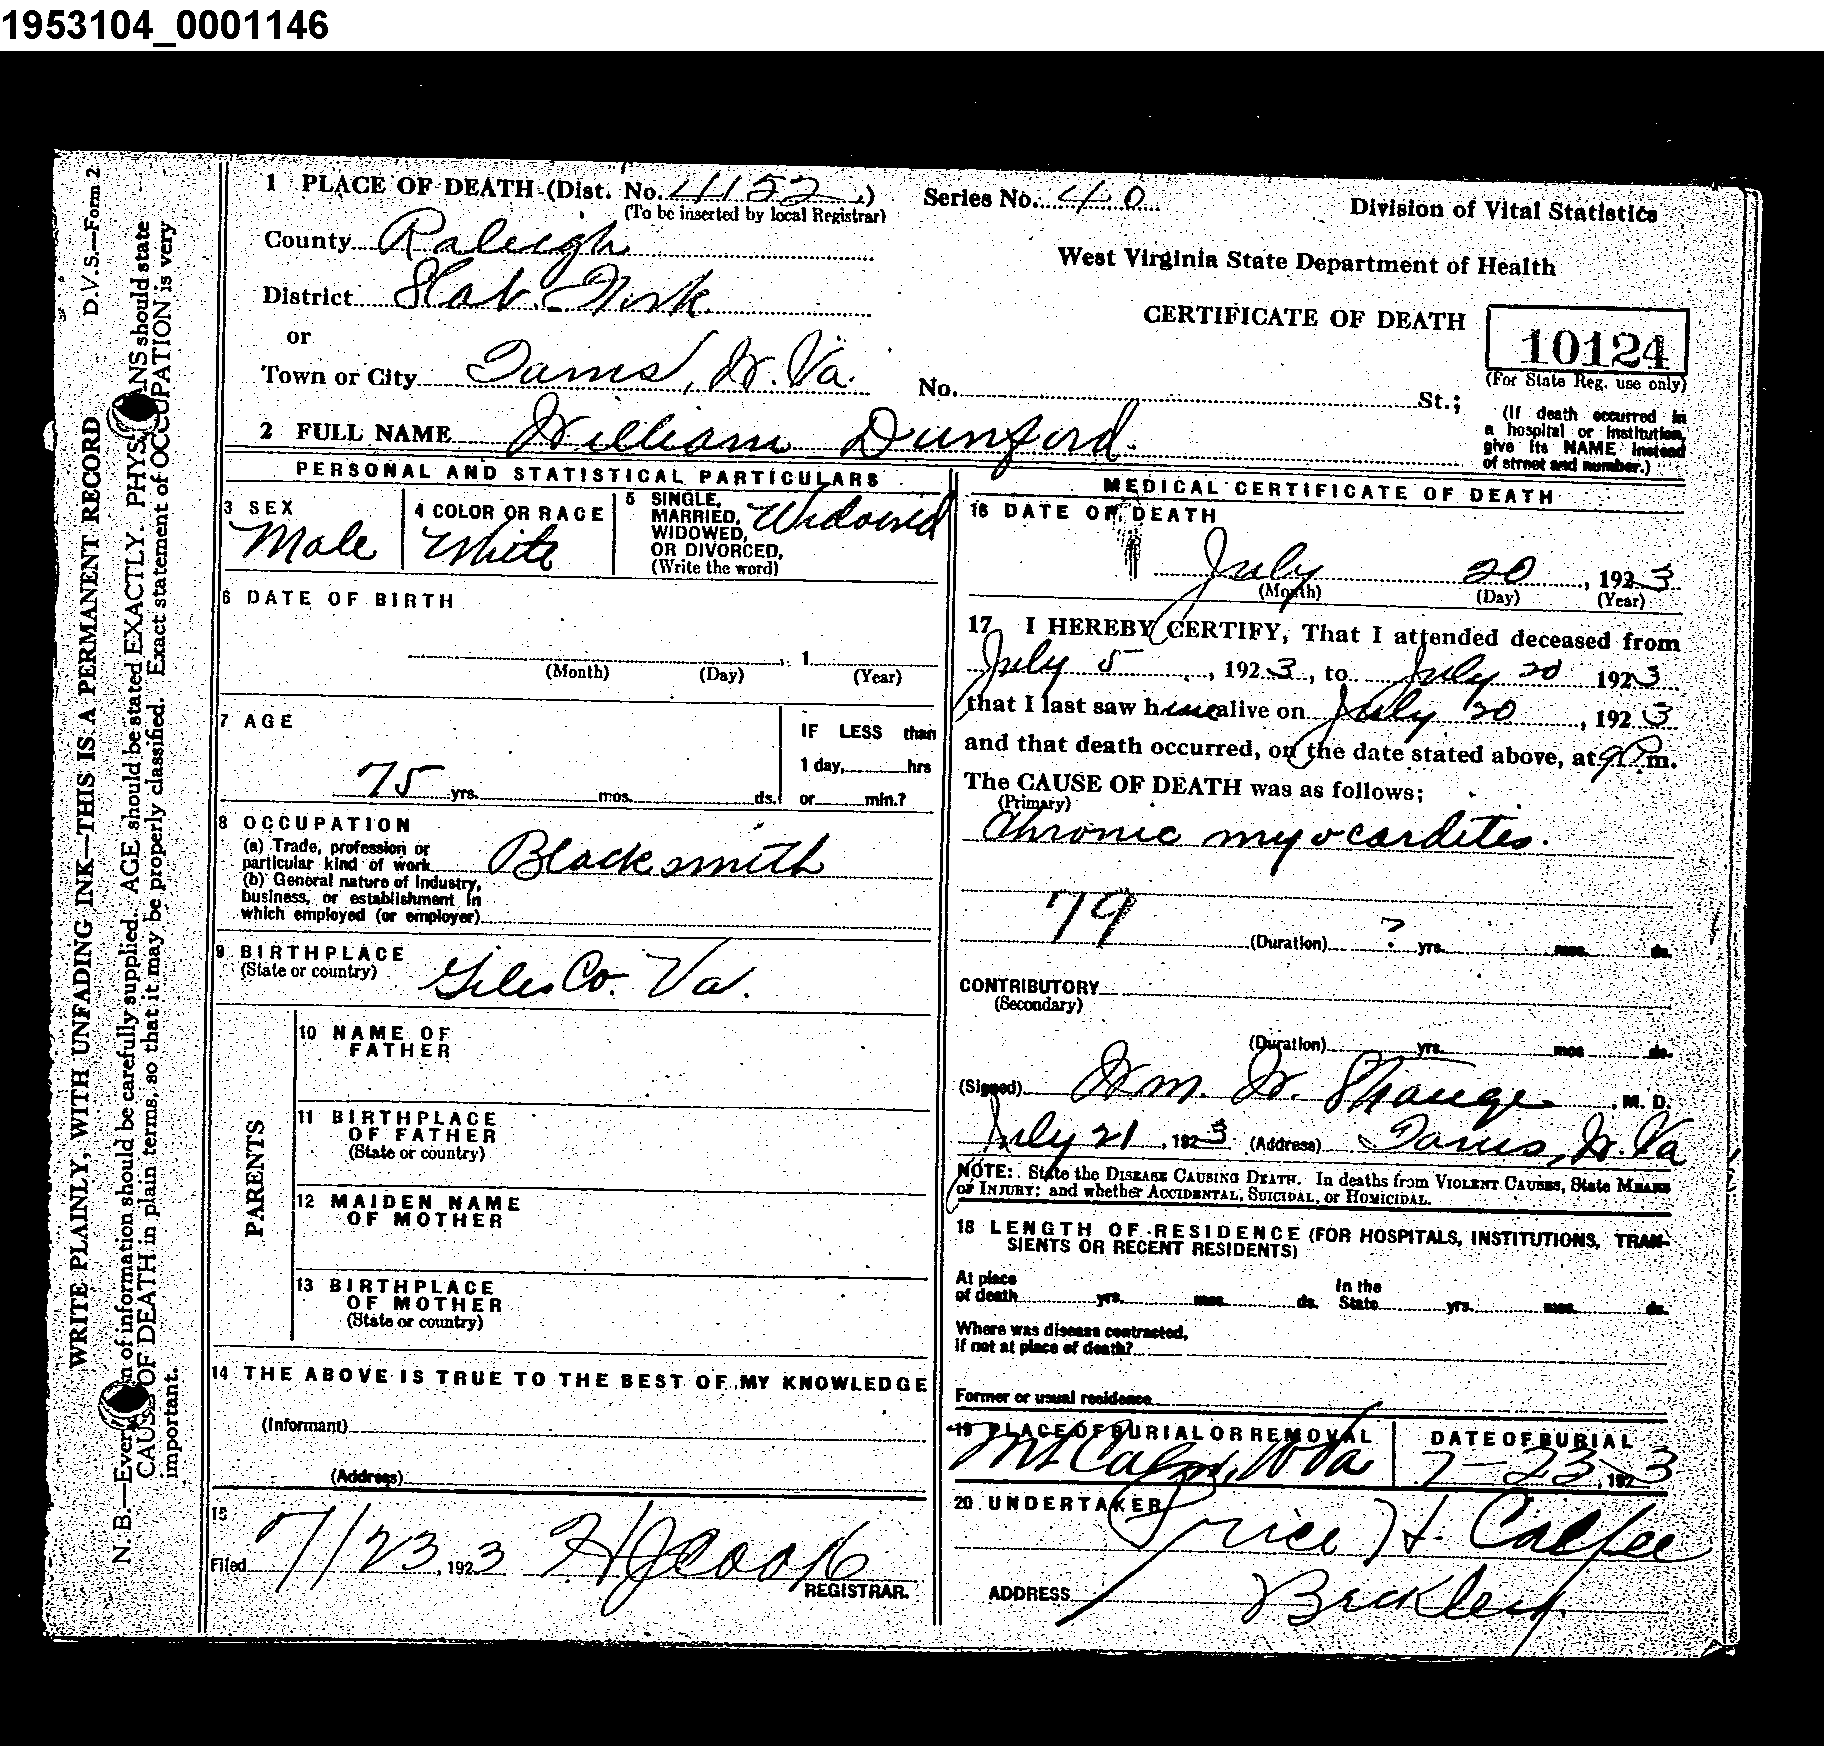 1953104_0001146
D.V.S.—Form 2
WRITE PLAINLY, WITH UNFADING INK—THIS IS A PERMANENT RECORD
N. B.—Every item of information should be carefully supplied. AGE should be stated EXACTLY. PHYSICIANS should state
CAUSE OF DEATH in plain terms, so that it may be properly classified. Exact statement of OCCUPATION is very
important.
1 PLACE OF DEATH (Dist. No. 4152)
(To be inserted by local Registrar)
Series No. 40
Division of Vital Statistics
County Raleigh
West Virginia State Department of Health
District Slab Fork
CERTIFICATE OF DEATH
10124
(For State Reg. use only)
or
Town or City Tams, W. Va. No. St.;
(If death occurred in
a hospital or institution,
give its NAME instead
of street and number.)
2 FULL NAME William Dunford.
PERSONAL AND STATISTICAL PARTICULARS
3 SEX
Male
4 COLOR OR RACE
White
5 SINGLE,
MARRIED,
WIDOWED,
OR DIVORCED,
(Write the word)
Widowed
6 DATE OF BIRTH
, 1
(Month) (Day) (Year)
7 AGE
75 yrs. mos. ds.
IF LESS than
1 day, hrs
or min.?
8 OCCUPATION
(a) Trade, profession or
particular kind of work Blacksmith
(b) General nature of Industry,
business, or establishment in
which employed (or employer)
9 BIRTHPLACE
(State or country) Giles Co. Va.
PARENTS
10 NAME OF
FATHER
11 BIRTHPLACE
OF FATHER
(State or country)
12 MAIDEN NAME
OF MOTHER
13 BIRTHPLACE
OF MOTHER
(State or country)
14 THE ABOVE IS TRUE TO THE BEST OF MY KNOWLEDGE
(Informant)
(Address)
15
Filed 7/23, 1923 REGISTRAR.
MEDICAL CERTIFICATE OF DEATH
16 DATE OF DEATH
July 20, 1923
(Month) (Day) (Year)
17 I HEREBY CERTIFY, That I attended deceased from
July 5, 1923, to July 20 1923
that I last saw him alive on July 20, 1923
and that death occurred, on the date stated above, at 9 P.m.
The CAUSE OF DEATH was as follows;
(Primary)
Chronic myocardites.
79
(Duration) ? yrs. mos. ds.
CONTRIBUTORY
(Secondary)
(Duration) yrs. mos. ds.
(Signed) Wm. W. Strange, M. D.
July 21, 1923 (Address) Tams, W. Va
NOTE: State the DISEASE CAUSING DEATH. In deaths from VIOLENT CAUSES, State MEANS
OF INJURY; and whether ACCIDENTAL, SUICIDAL, or HOMICIDAL.
18 LENGTH OF RESIDENCE (FOR HOSPITALS, INSTITUTIONS, TRAN-
SIENTS OR RECENT RESIDENTS)
At place
of death yrs. mos. ds.
In the
State yrs. mos. ds.
Where was disease contracted,
if not at place of death?
Former or usual residence
19 PLACE OF BURIAL OR REMOVAL
Mt Calm, W Va
DATE OF BURIAL
7-23, 1923
20 UNDERTAKER
Price H. Calfee
ADDRESS Beckley.